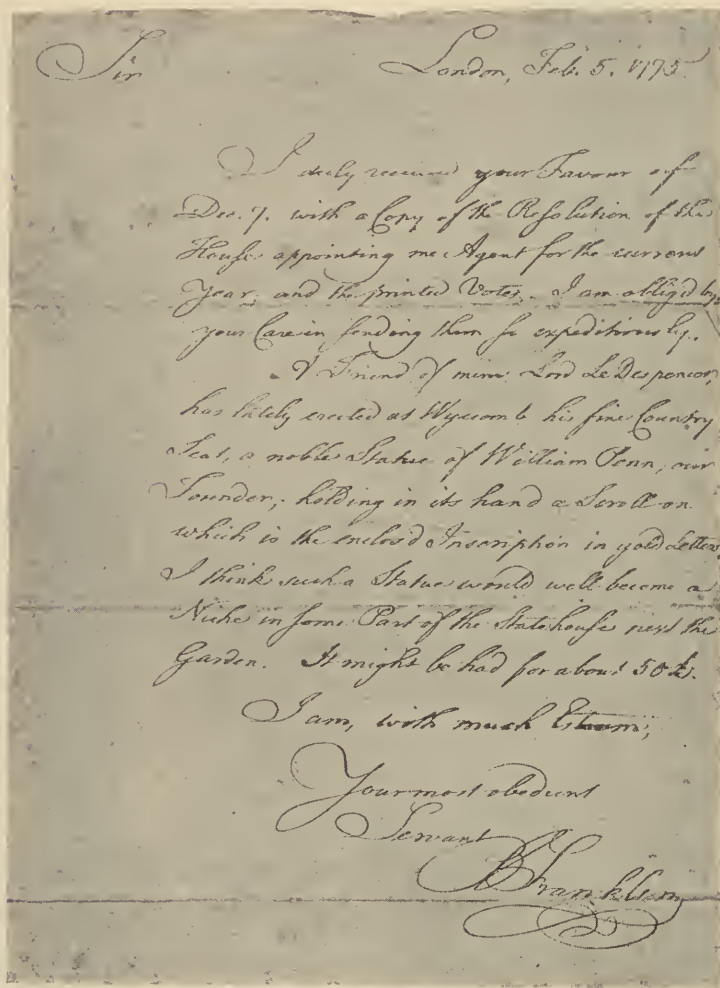 Sir London, Feb. 5. 1775
I duly received your Favour of
Dec. 7. with a Copy of the Resolution of the
House appointing me Agent for the current
Year, and the printed Votes. I am obliged by
your Care in sending them so expeditiously.
A Friend of mine Lord Le Despencer,
has lately erected at Wycomb his fine Country
Seat, a noble Statue of William Penn, our
Founder; holding in its hand a Scroll on
which is the enclos'd Inscription in gold Letters
I think such a Statue would well become a
Niche in some Part of the Statehouse next the
Garden. It might be had for about 50£.
I am, with much Esteem,
Your most obedient
Servant
B Franklin